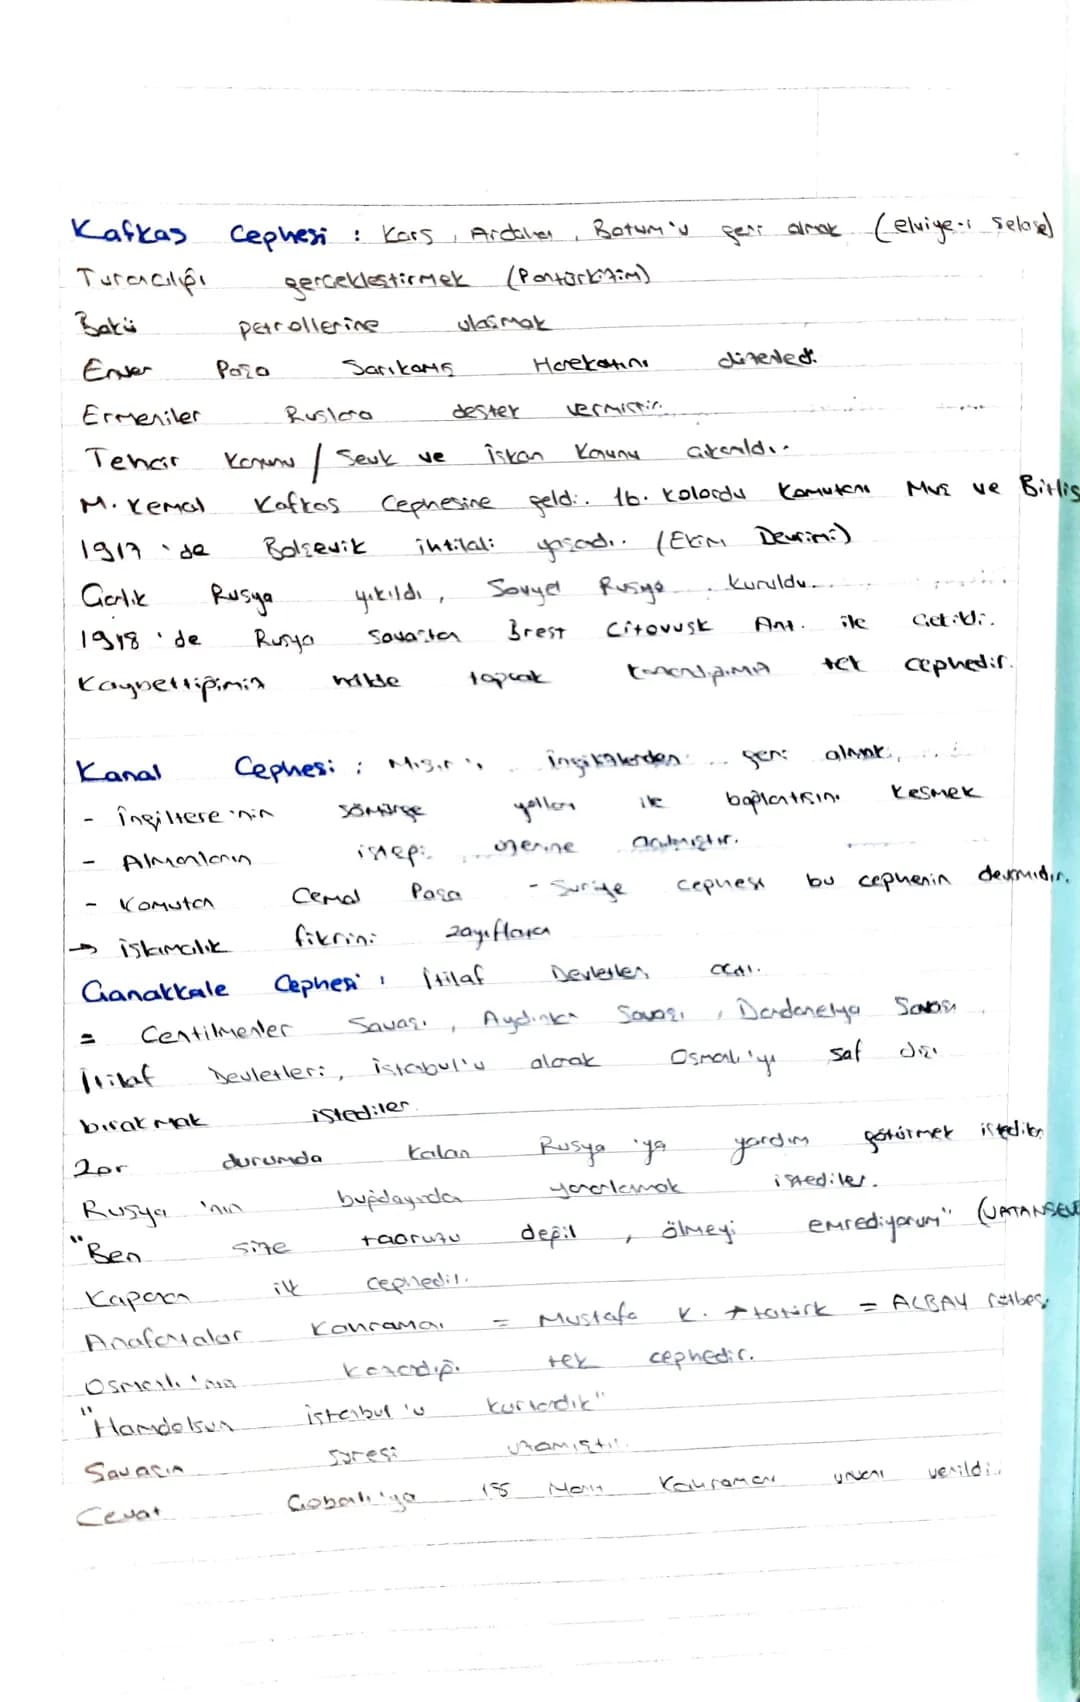 Kafkas Cephesi : Kars, Ardahan, Batum'u geri almak (elviye-i selase)
Turancılığı gerceklestirmek (Pantürkizim)
Bakü petrollerine ulasmak
Enver Paşa Sarıkamış Harekatını düzenledi.
Ermeniler Ruslara destek vermiştir.
Tehcir Kanunu / Sevk ve İskan Kanunu çıkarıldı.
M. Kemal Kafkas Cephesine geldi. 16. Kolordu Komutanı Muş ve Bitlis
1917'de Bolşevik ihtilali yaşadı. (Ekim Devrimi)
Çarlık Rusya yıkıldı, Sovyet Rusya kuruldu.
1918'de Rusya Savaştan Brest Citovusk Ant. ile çekildi.
Kaybettiğimiz halde toprak kazandığımız tek cephedir.
Kanal Cephesi : Mısır'ı İngilizlerden geri almak,
- İngiltere'nin sömürge yolları ile bağlantısını kesmek
- Almanların isteği üzerine açılmıştır.
- Komutan Cemal Paşa - Suriye cephesi bu cephenin devamıdır.
→ islamcılık fikrini zayıflatan
Çanakkale Cephesi : İtilaf Devletleri açtı.
= Centilmenler Savaşı, Aydınlar Savaşı, Dardanelya Savaşı
İtilaf Devletleri, istanbul'u alarak Osmanlı'yı saf dışı
bırakmak istediler.
Zor durumda kalan Rusya'ya yardım götürmek istediler
Rusya'nın buğdayında yararlanmak istediler.
"Ben size taaruzu değil, ölmeyi emrediyorum" (VATANSEVE
Kapanan ilk cephedir.
Anafartalar Kahramanı = Mustafa K. Atatürk = ALBAY rütbesi
Osmanlı'nın kazandığı tek cephedir.
"Hamdolsun istanbul'u kurtardık"
Savaşın süresi uzamıştır.
Cevat Çobanlı'ya 18 Mart Kahramanı unvanı verildi.